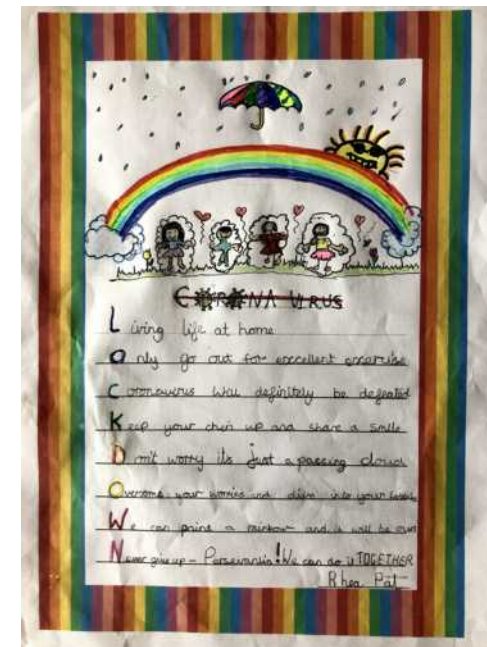 CORONA VIRUS
Living life at home
Only go out for excellent exercise
Coronavirus will definitely be defeated
Keep your chin up and share a smile
Don't worry its just a passing cloud
Overcome your worries and into your
We can paint a rainbow and it will be
Never give up - ! We can do it TOGETHER
Rhea Pat